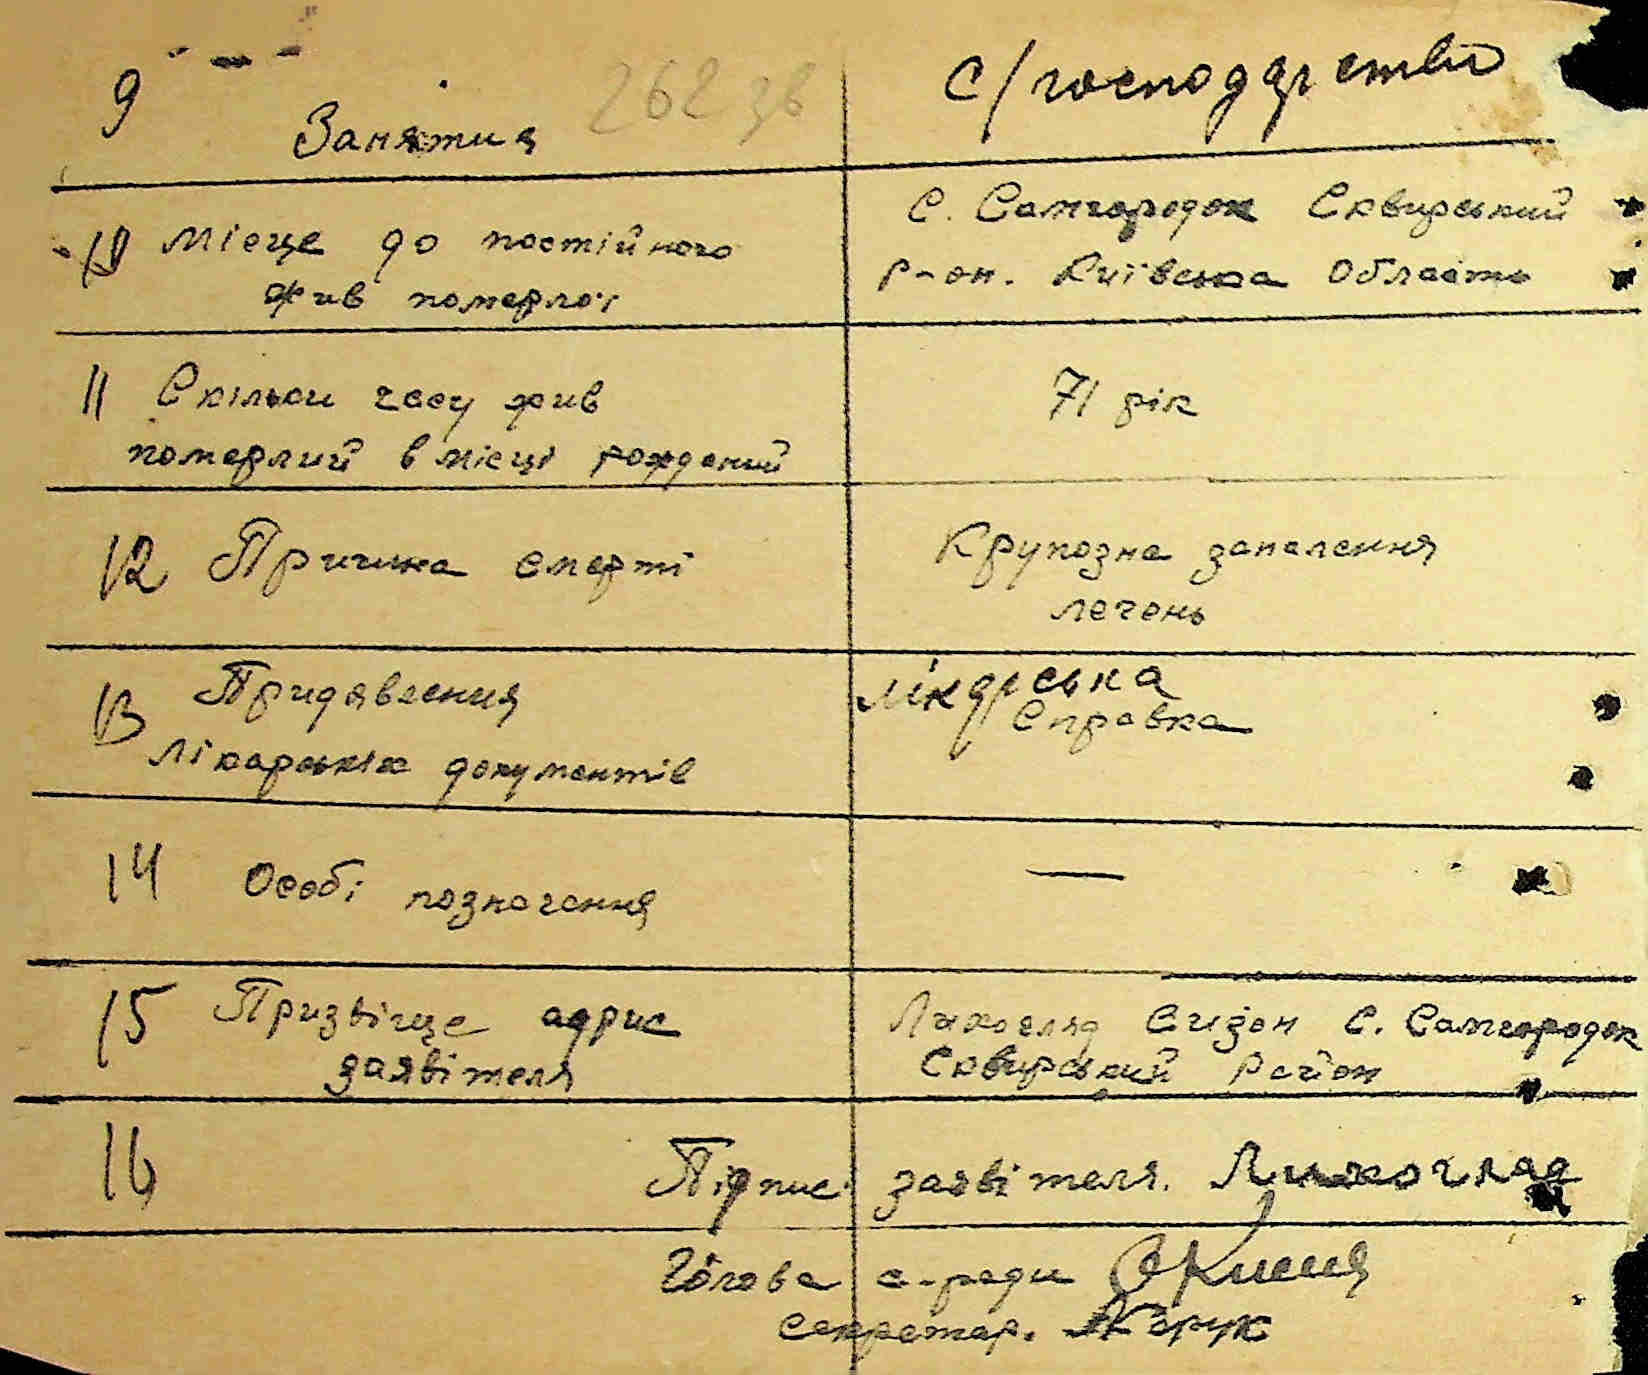 262 зв
9 Занятия с/господарство
10 Місце до постійного С. Самгородок Сквирський
жив померлої р-он. Київська область
11 Скільки часу жив 71 рік
померлий в місці рождений
12 Причина смерті Крупозне запалення
легень
13 Придявлення лікарська
справка
лікарських документів
14 Особі позначення —
15 Призвіще адрис Лихогляд Сизон С. Самгородок
заявітеля Сквирський район
16 Підпис заявітеля. Лихогляд
Голова с-ради
секретар.